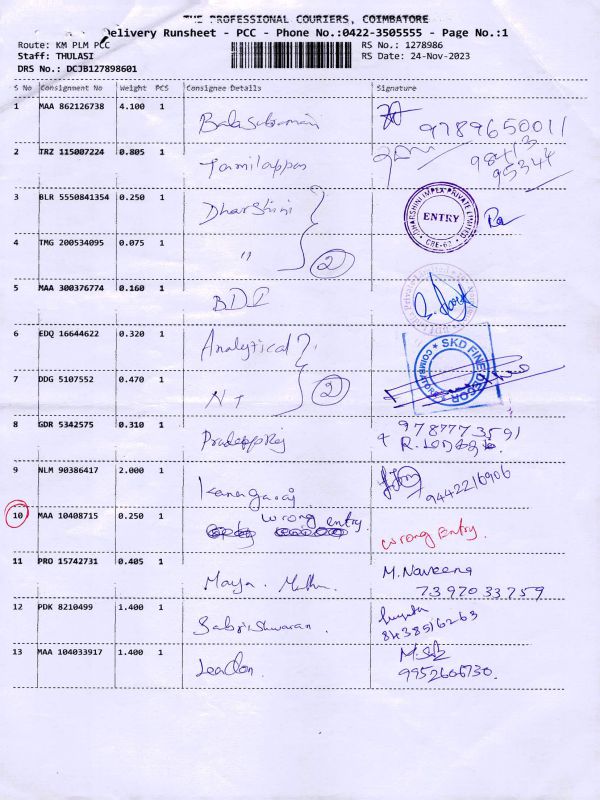 THE PROFESSIONAL COURIERS, COIMBATORE
Delivery Runsheet - PCC - Phone No.:0422-3505555 - Page No.:1
Route: KM PLM PCC
RS No.: 1278986
Staff: THULASI
RS Date: 24-Nov-2023
DRS No.: DCJB127898601
S No Consignment No Weight PCS Consignee Details Signature
1 MAA 862126738 4.100 1 Balasubramani 9789650011
2 TRZ 115007224 0.805 1 Tamilappan 98413
95344
3 BLR 5550841354 0.250 1 Dharshini
DHARSHINI IMPEX PRIVATE LIMITED
ENTRY
CBE-62
4 TMG 200534095 0.075 1 " 2
5 MAA 300376774 0.160 1 BDI
6 EDQ 16644622 0.320 1 Analytical
SKD FINE DECOR
COIMBATORE
7 DDG 5107552 0.470 1 NT 2
8 GDR 5342575 0.310 1 Pradeep Raj 9787773591
9 NLM 90386417 2.000 1 Kanagaraj 9442216906
10 MAA 10408715 0.250 1 wrong entry. wrong Entry.
11 PRO 15742731 0.405 1 Maya. M. Naveena
7397033759
12 PDK 8210499 1.400 1 Sabarishwaran.
8438516263
13 MAA 104033917 1.400 1 Leadon.
9952606730.